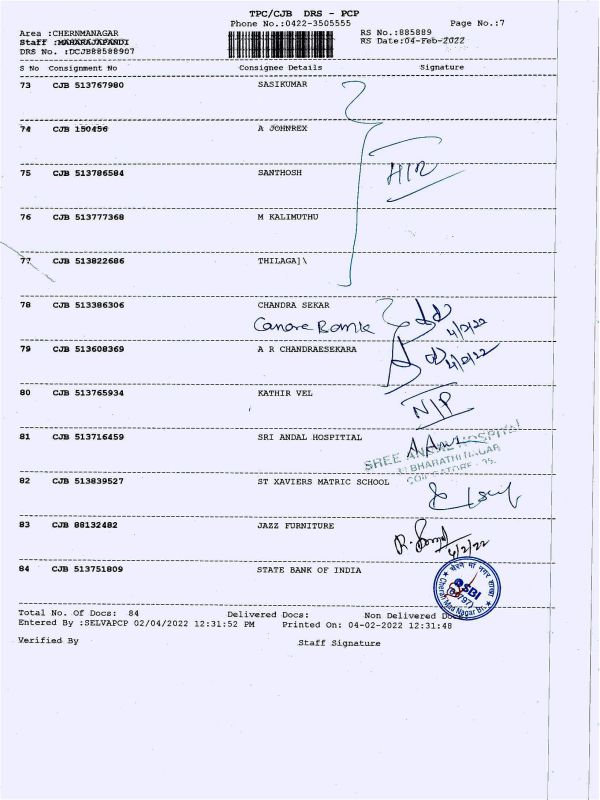 TPC/CJB DRS - PCP
Phone No.:0422-3505555 Page No.:7
Area :CHERNMANAGAR RS No.:885889
Staff :MAHARAJAPANDI RS Date:04-Feb-2022
DRS No. :DCJB88588907
S No Consignment No Consignee Details Signature
73 CJB 513767980 SASIKUMAR
74 CJB 150456 A JOHNREX
H/R
75 CJB 513786584 SANTHOSH
76 CJB 513777368 M KALIMUTHU
77 CJB 513822686 THILAGA]\
78 CJB 513386306 CHANDRA SEKAR
Canare Bamk 4/2/22
79 CJB 513608369 A R CHANDRAESEKARA 4/2/22
80 CJB 513765934 KATHIR VEL
N/P
81 CJB 513716459 SRI ANDAL HOSPITIAL
SREE ANDAL HOSPITAL
BHARATHI NAGAR
COIMBATORE - 35.
82 CJB 513839527 ST XAVIERS MATRIC SCHOOL
83 CJB 88132482 JAZZ FURNITURE
4/2/22
84 CJB 513751809 STATE BANK OF INDIA
चेरन मां नगर शाखा
SBI
Cheran Maa Nagar Br.
Total No. Of Docs: 84 Delivered Docs: Non Delivered Docs:
Entered By :SELVAPCP 02/04/2022 12:31:52 PM Printed On: 04-02-2022 12:31:48
Verified By Staff Signature